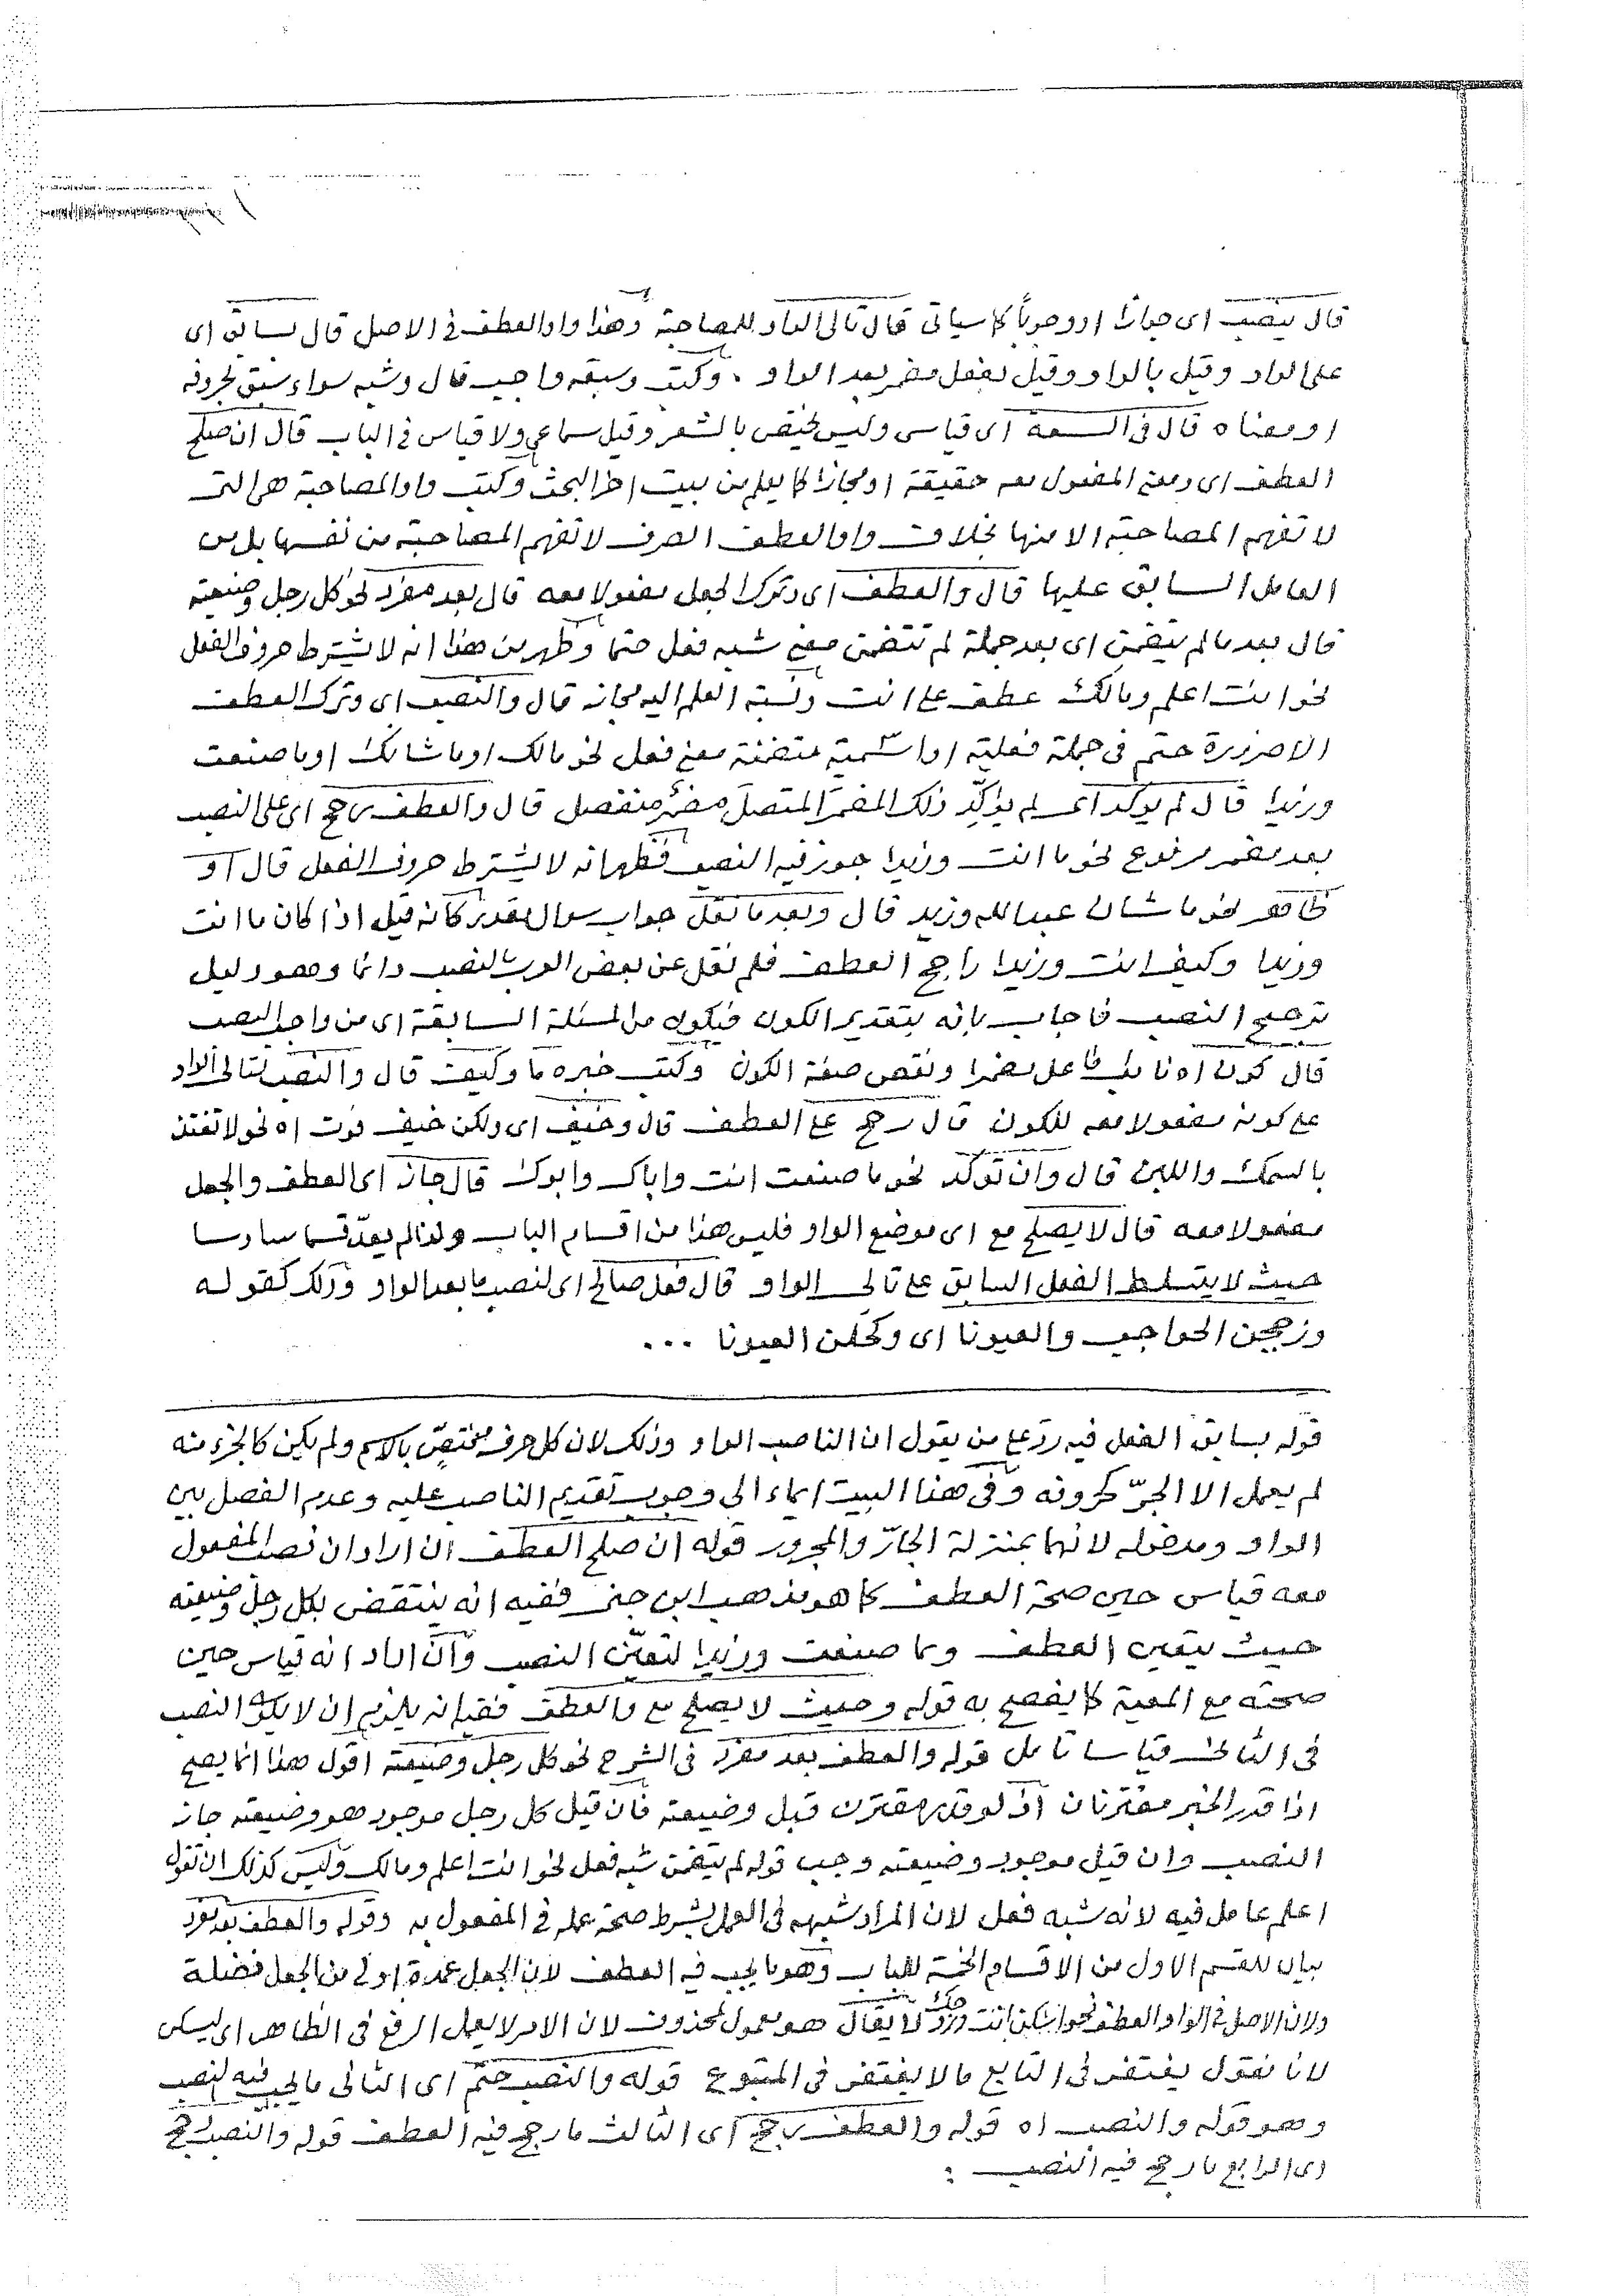 قال ينصب اى جوازا او وجوبا كما سياتى قال تالى الواو للمصاحبة وهذا واو العطف فى الاصل قال بسابق اى
على الواو وقيل بالواو وقيل بفعل مضمر بعد الواو . وكتب وسبقه واجب قال وشبه سواء سبق بحروفه
او معناه قال فى السعة اى قياسى وليس يختص بالشعر وقيل سماعى ولا قياس فى الباب قال ان صلح
العطف اى ومعنى المفعول معه حقيقة او مجازا كما يعلم من بيت اخر البحث وكتب واو المصاحبة هى التى
لا تفهم المصاحبة الا منها بخلاف واو العطف الصرف لا تفهم المصاحبة من نفسها بل من
العامل السابق عليها قال والعطف اى وترك الجعل مفعولا معه قال بعد مفرد نحو كل رجل وضيعته
قال بعد ما لم يتضمن اى بعد جملة لم تتضمن معنى شبه فعل حتما وظهر من هذا انه لا يشترط حروف الفعل
نحو انت اعلم ومالك عطف على انت ونسبة العلم اليه مجاز قال والنصب اى وترك العطف
الا ضرورة حتم فى جملة فعلية او اسمية متضمنة معنى فعل نحو مالك او ما شانك او ما صنعت
وزيدا قال لم يوكد اى لم يوكّد ذلك المضمر المتصل مضمر منفصل قال والعطف رجح اى على النصب
بعد مضمر مرفوع نحو ما انت وزيدا جوز فيه النصب فظهر انه لا يشترط حروف الفعل قال او
ظاهر نحو ما شان عبد الله وزيد قال وبعد ما نقل جواب سوال مقدر كانه قيل اذا كان ما انت
وزيدا وكيف انت وزيدا راجح العطف فلم نقل عن بعض العرب بالنصب دائما وهو دليل
ترجيح النصب فاجاب بانه بتقدير الكون فيكون من المسئلة السابقة اى من واجب النصب
قال كون اه نائب فاعل مضمرا ونقص صفة الكون وكتب خبره ما وكيف قال والنصب لتالى الواو
على كونه مفعولا معه للكون قال رجح على العطف قال وخيف اى ولكن خيف فوت اه نحو لا تغتذ
بالسمك واللبن قال وان توكد نحو ما صنعت انت واباك وابوك قال جاز اى العطف والجعل
مفعولا معه قال لا يصلح مع اى موضع الواو فليس هذا من اقسام الباب ولذا لم يعدّ قسما سادسا
حيث لا يتسلط الفعل السابق على تالى الواو قال فعل صالح اى لنصب ما بعد الواو وذلك كقوله
وزججن الحواجب والعيونا اى وكحّلن العيونا ...
قوله بسابق الفعل فيه ردّ على من يقول ان الناصب الواو وذلك لان كل حرف مختصّ بالاسم ولم يكن كالجزء منه
لم يعمل الا الجرّ كحروفه وفى هذا البيت ايماء الى وجوب تقديم الناصب عليه وعدم الفصل بين
الواو ومدخوله لانهما بمنزلة الجارّ والمجرور قوله ان صلح العطف ان اراد ان نصب المفعول
معه قياس حين صحة العطف كما هو مذهب ابن جنى ففيه انه ينتقض بكل رجل وضيعته
حيث يتعين العطف وما صنعت وزيدا لتعيّن النصب وان اراد انه قياس حين
صحته مع المعية كما يفصح به قوله وحيث لا يصلح مع والعطف ففيه انه يلزم ان لا يكون النصب
فى الثانى قياسا تامل قوله والعطف بعد مفرد فى الشرح نحو كل رجل وضيعته اقول هذا انما يصح
اذا قدر الخبر مقترنان اذ لو قدر مقترن قبل وضيعته فان قيل كل رجل موجود هو وضيعته جاز
النصب وان قيل موجود وضيعته وجب قوله لم يتضمن شبه فعل نحو انت اعلم ومالك وليس كذلك ان تقول
اعلم عامل فيه لانه شبه فعل لان المراد شبهه فى العمل بشرط صحة عمله فى المفعول به وقوله والعطف بعد مفرد
بيان للقسم الاول من الاقسام الخمسة للباب وهو ما يجب فيه العطف لان الجعل عمدة اولى من الجعل فضلة
ولان الاصل فى الواو العطف نحو اسكن انت وزوجك لا يقال هو معمول لمحذوف لان الامر لا يعمل الرفع فى الظاهر اى ليسكن
لانا نقول يغتفر فى التابع ما لا يغتفر فى المتبوع قوله والنصب حتم اى الثانى ما يجب فيه النصب
وهو قوله والنصب اه قوله والعطف رجح اى الثالث ما رجح فيه العطف قوله والنصب رجح
اى الرابع ما رجح فيه النصب :